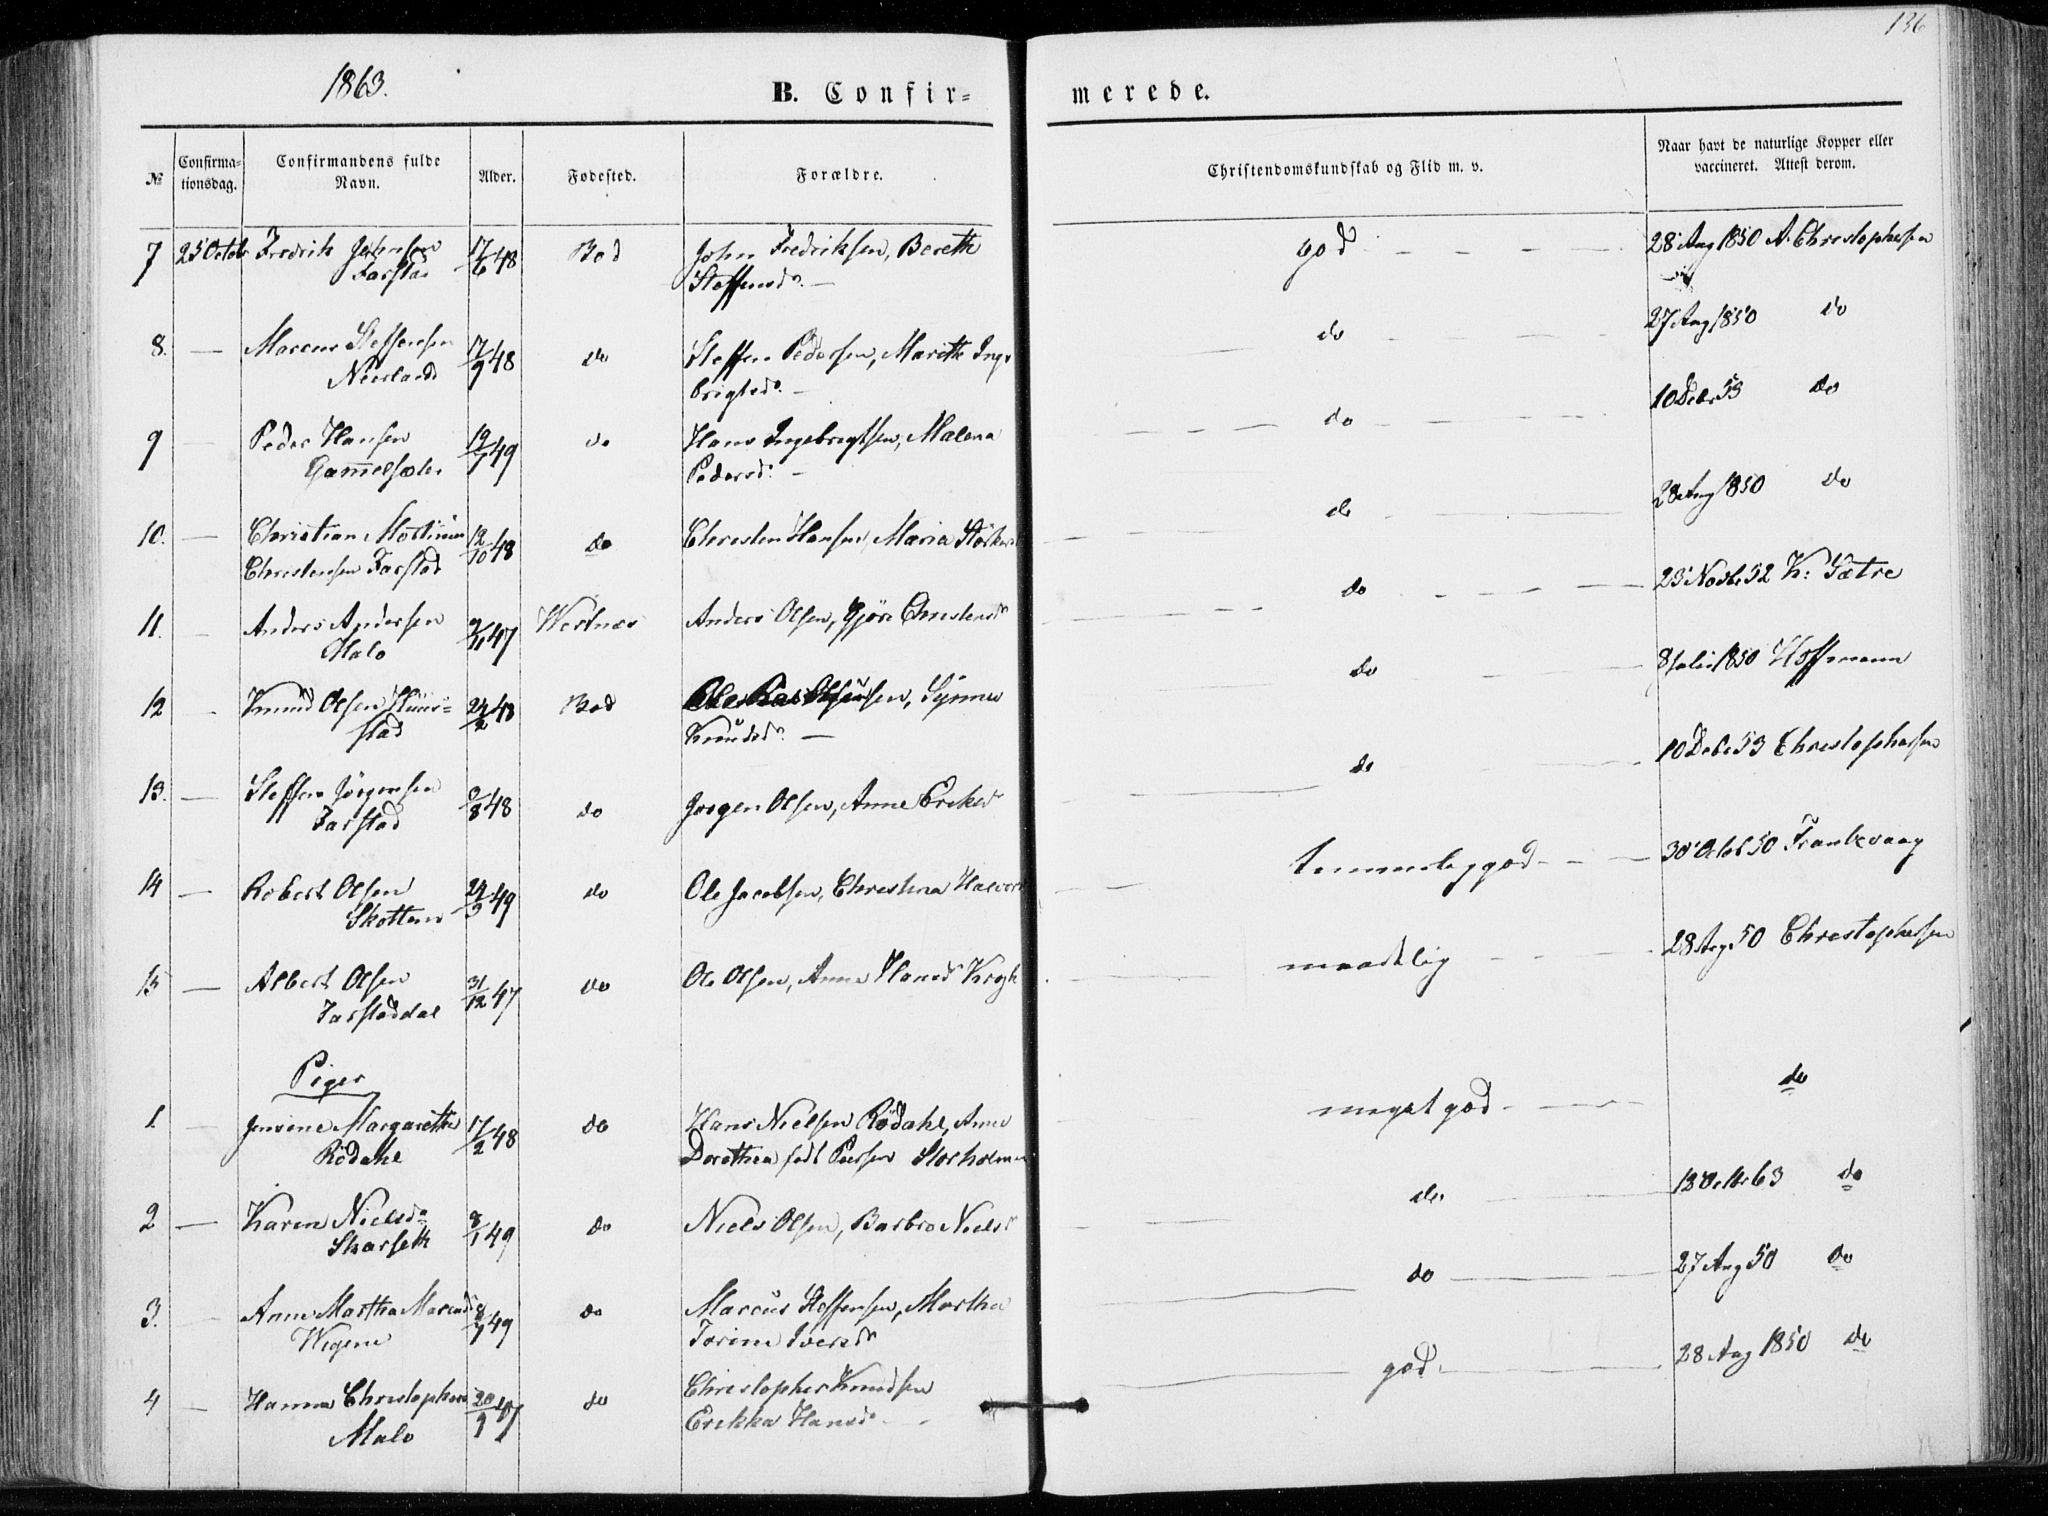 136
1863.
B. Confir=merede.
№
Confirma-tionsdag.
Confirmandens fulde Navn.
Alder.
Fødested.
Forældre.
Christendomskundskab og Flid m. v.
Naar havt de naturlige Kopper eller vaccineret. Attest derom.
7 25 Octob Fredrik Johnsen 17/6 48 Bod John Fredriksen, Bereth god 28 Aug 1850 A. Christophersen
Farstad Steffensd.
8. — Marcus Steffensen 17/9 48 do Steffen Pedersen, Marith Inge do 27 Aug 1850 do
Nerland brigtsd.
9 — Peder Hansen 19/1 49 do Hans Ingebrigtsen, Malena do 10 Decbr 53 do
Gammelsæter Pedersd.
10. — Christian Mortinus 12/10 48 do Christen Hansen, Maria do 28 Aug 1850 do
Christensen Farstad
11. — Anders Andersen 9/11 47 Westnæs Anders Olsen, Gjöre Christensd do 25 Novbr 52 K: Sætre
Malo
12 — Knud Olsen Huus- 24/2 48 Bod Ole Synnev do 8 Juli 1850 Hoffmann
stad Knudsd.
13. — Steffen Jörgensen 9/8 48 do Jörgen Olsen, Anne Eriksd do 10 Debr 53 Christophersen
Farstad
14 — Robert Olsen 24/3 49 do Ole Jacobsen, Christina Halvorsd temmelig god 30 Octob 50 Frankevaag
Skotten
15 — Albert Olsen 31/12 47 do Ole Olsen, Anne Hansd Krogh maadelig 28 Aug 50 Christophersen
Farstaddal
Piger
1. Jensine Margarethe 17/2 48 do Hans Nielsen Rödahl, Anne meget god do
Rödahl Dorothea född Storholmen
2 — Karen Nielsd. 8/1 49 do Niels Olsen, Barbro Nielsd do 12 Octbr 63 do
Skarseth
3. — Anne Martha Marcusd 8/7 49 do Marcus Steffensen, Martha do 27 Aug 50 do
Wigene Torine Iversd
4 — Hanna Christophersd 20/9 47 do Christopher Knudsen god 28 Aug 1850 do
Malo Erikka Hansd.